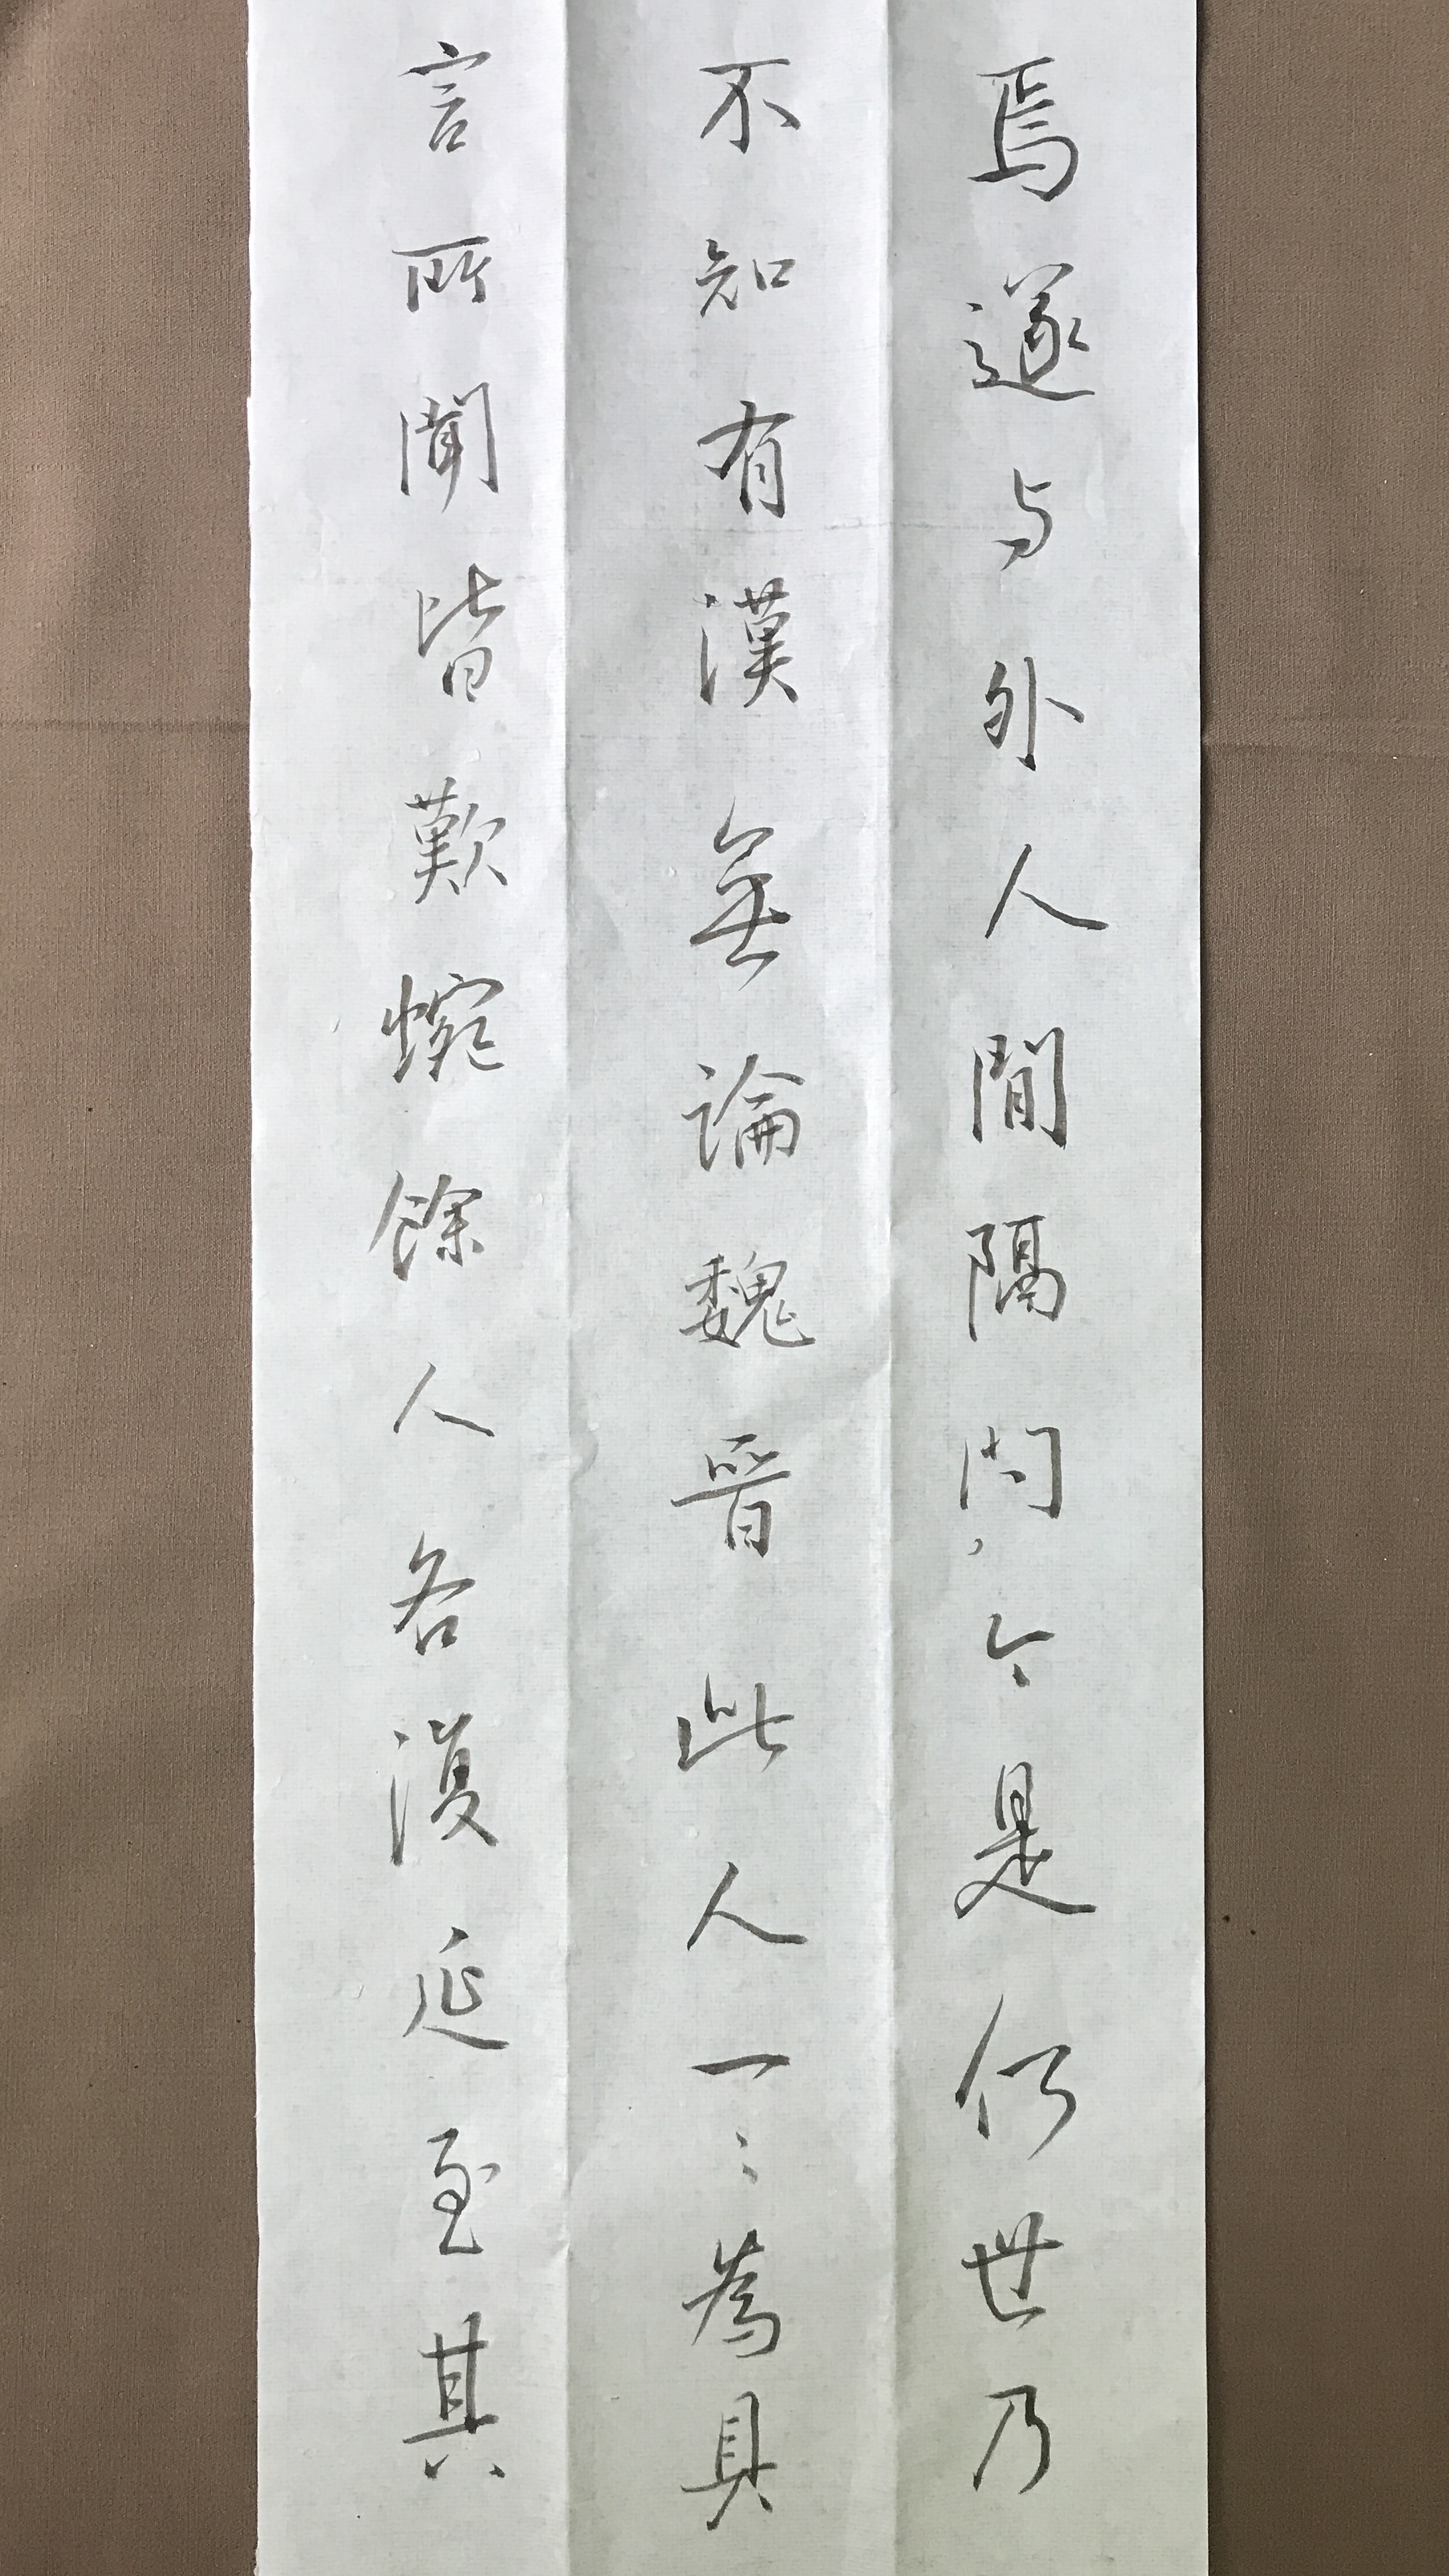 焉遂与外人間隔問今是何世乃
不知有漢無論魏晉此人一〻為具
言所聞皆歎惋餘人各復延至其